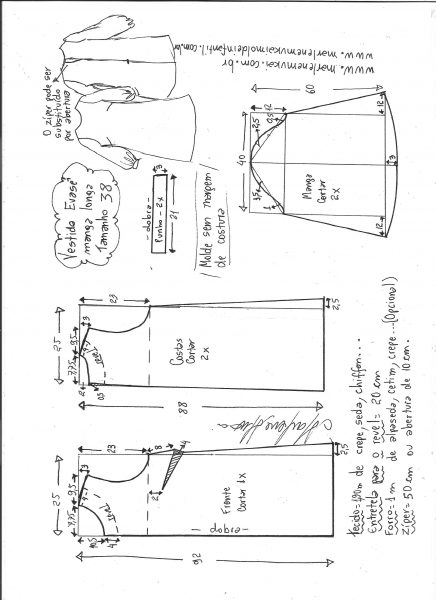 www.marlenemukai.com.br
www.marlenemukaimoldeinfantil.com.br
O zíper pode ser
substituído
por abertura
Vestido Evasê
manga longa
Tamanho 38
3
- dobra -
Punho - 2x
21
Molde sem margem
de costura
60
12
0,5
2,5
12
40
Manga
Cortar
2x
3
3,5
1
12
23
2,5
25
3
9,5
1
7,75
revel
2
0,5
Costas
Cortar
2x
88
23
8
4
2,5
25
3
9,5
1
7,75
revel
2
10,5
4
Frente
Cortar 1x
- dobra -
92
Tecido = 1,90m de crepe, seda, chiffon...
Entretela para o revel = 20 cm
Forro = 1 m de alpaseda, cetim, crepe...(Opcional)
Zíper = 50 cm ou abertura de 10 cm.